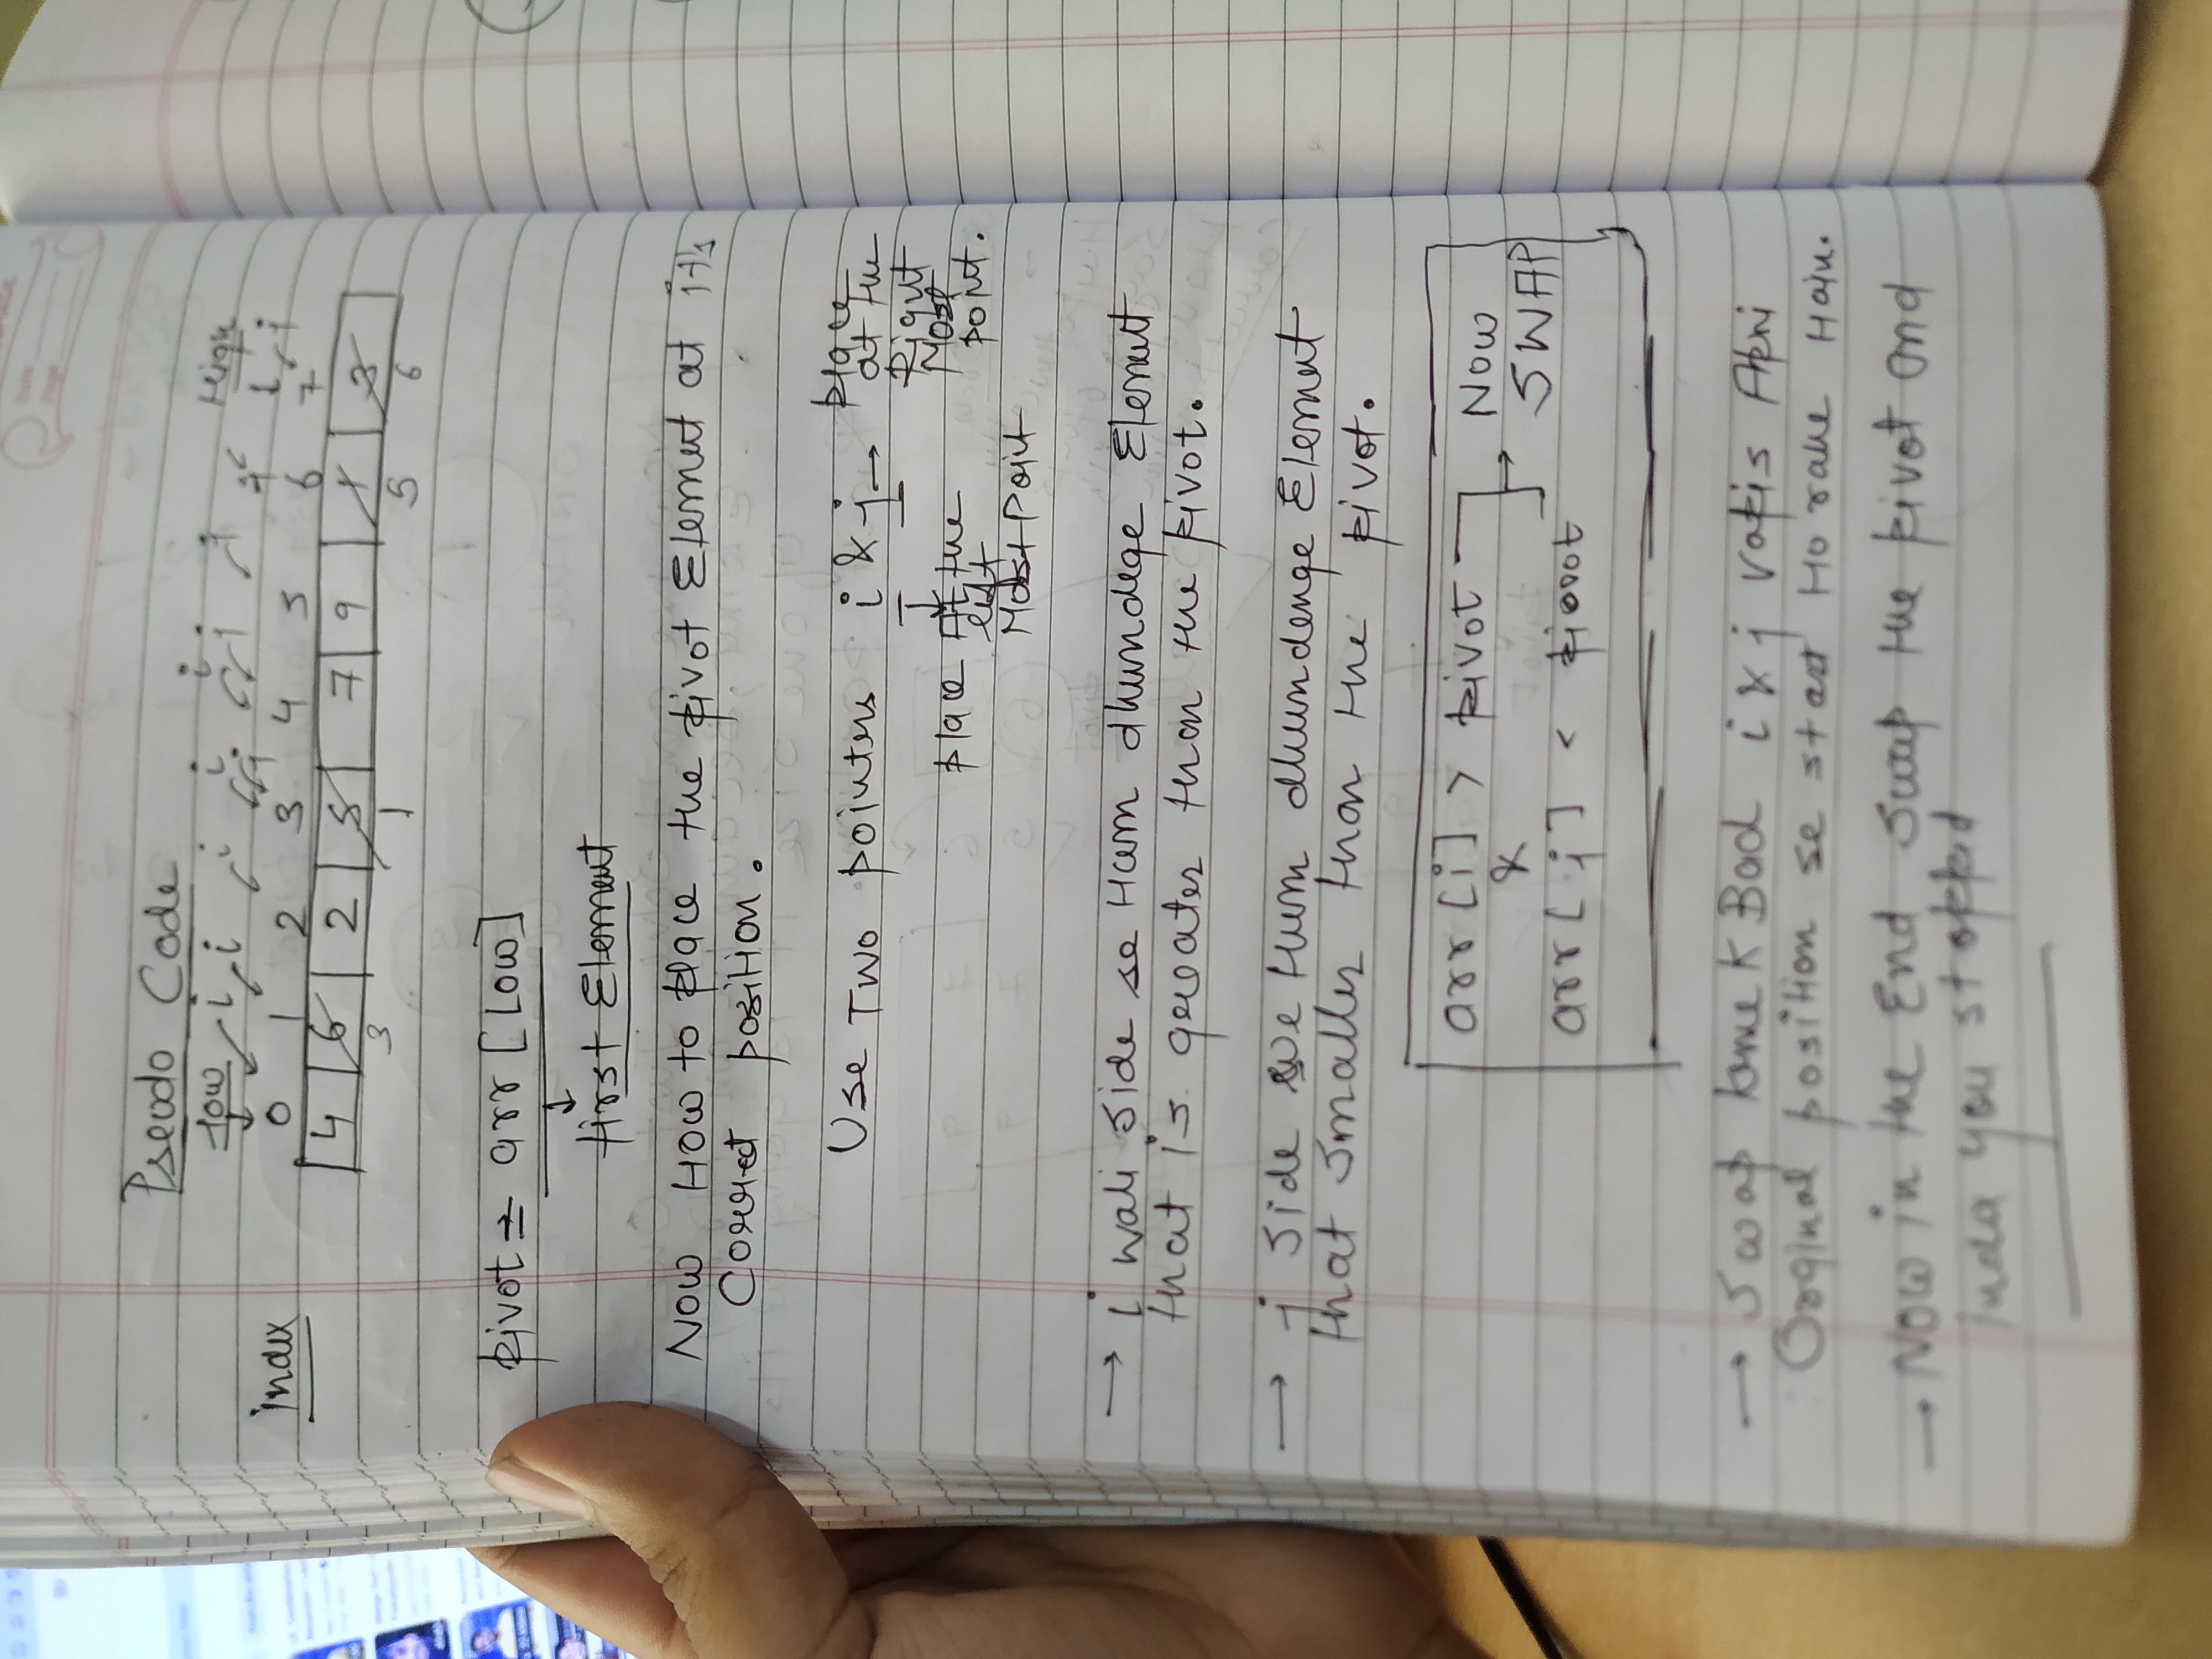 Pseudo Code
low i i i i i j j High
j j j
index 0 1 2 3 4 5 6 7
4 6 2 5 7 9 1 3
3 1 5 6
pivot = arr [Low]
first Element
Now How to place the pivot Element at it's
Correct position.
Use Two pointers i & j → place
at the
Right
Most
point.
place At the
left
Most Point
→ i wali side se Hum dhundege Element
that is greater than the pivot.
→ j side Hum dhundenge Element
that smaller than the pivot.
arr [i] > pivot
&
arr [j] < pivot
Now
SWAP
→ Swap karne k Bad i & j vapis Apni
Orginal position se start Ho rahe Hain.
→ Now in the End swap the pivot and
you stopped